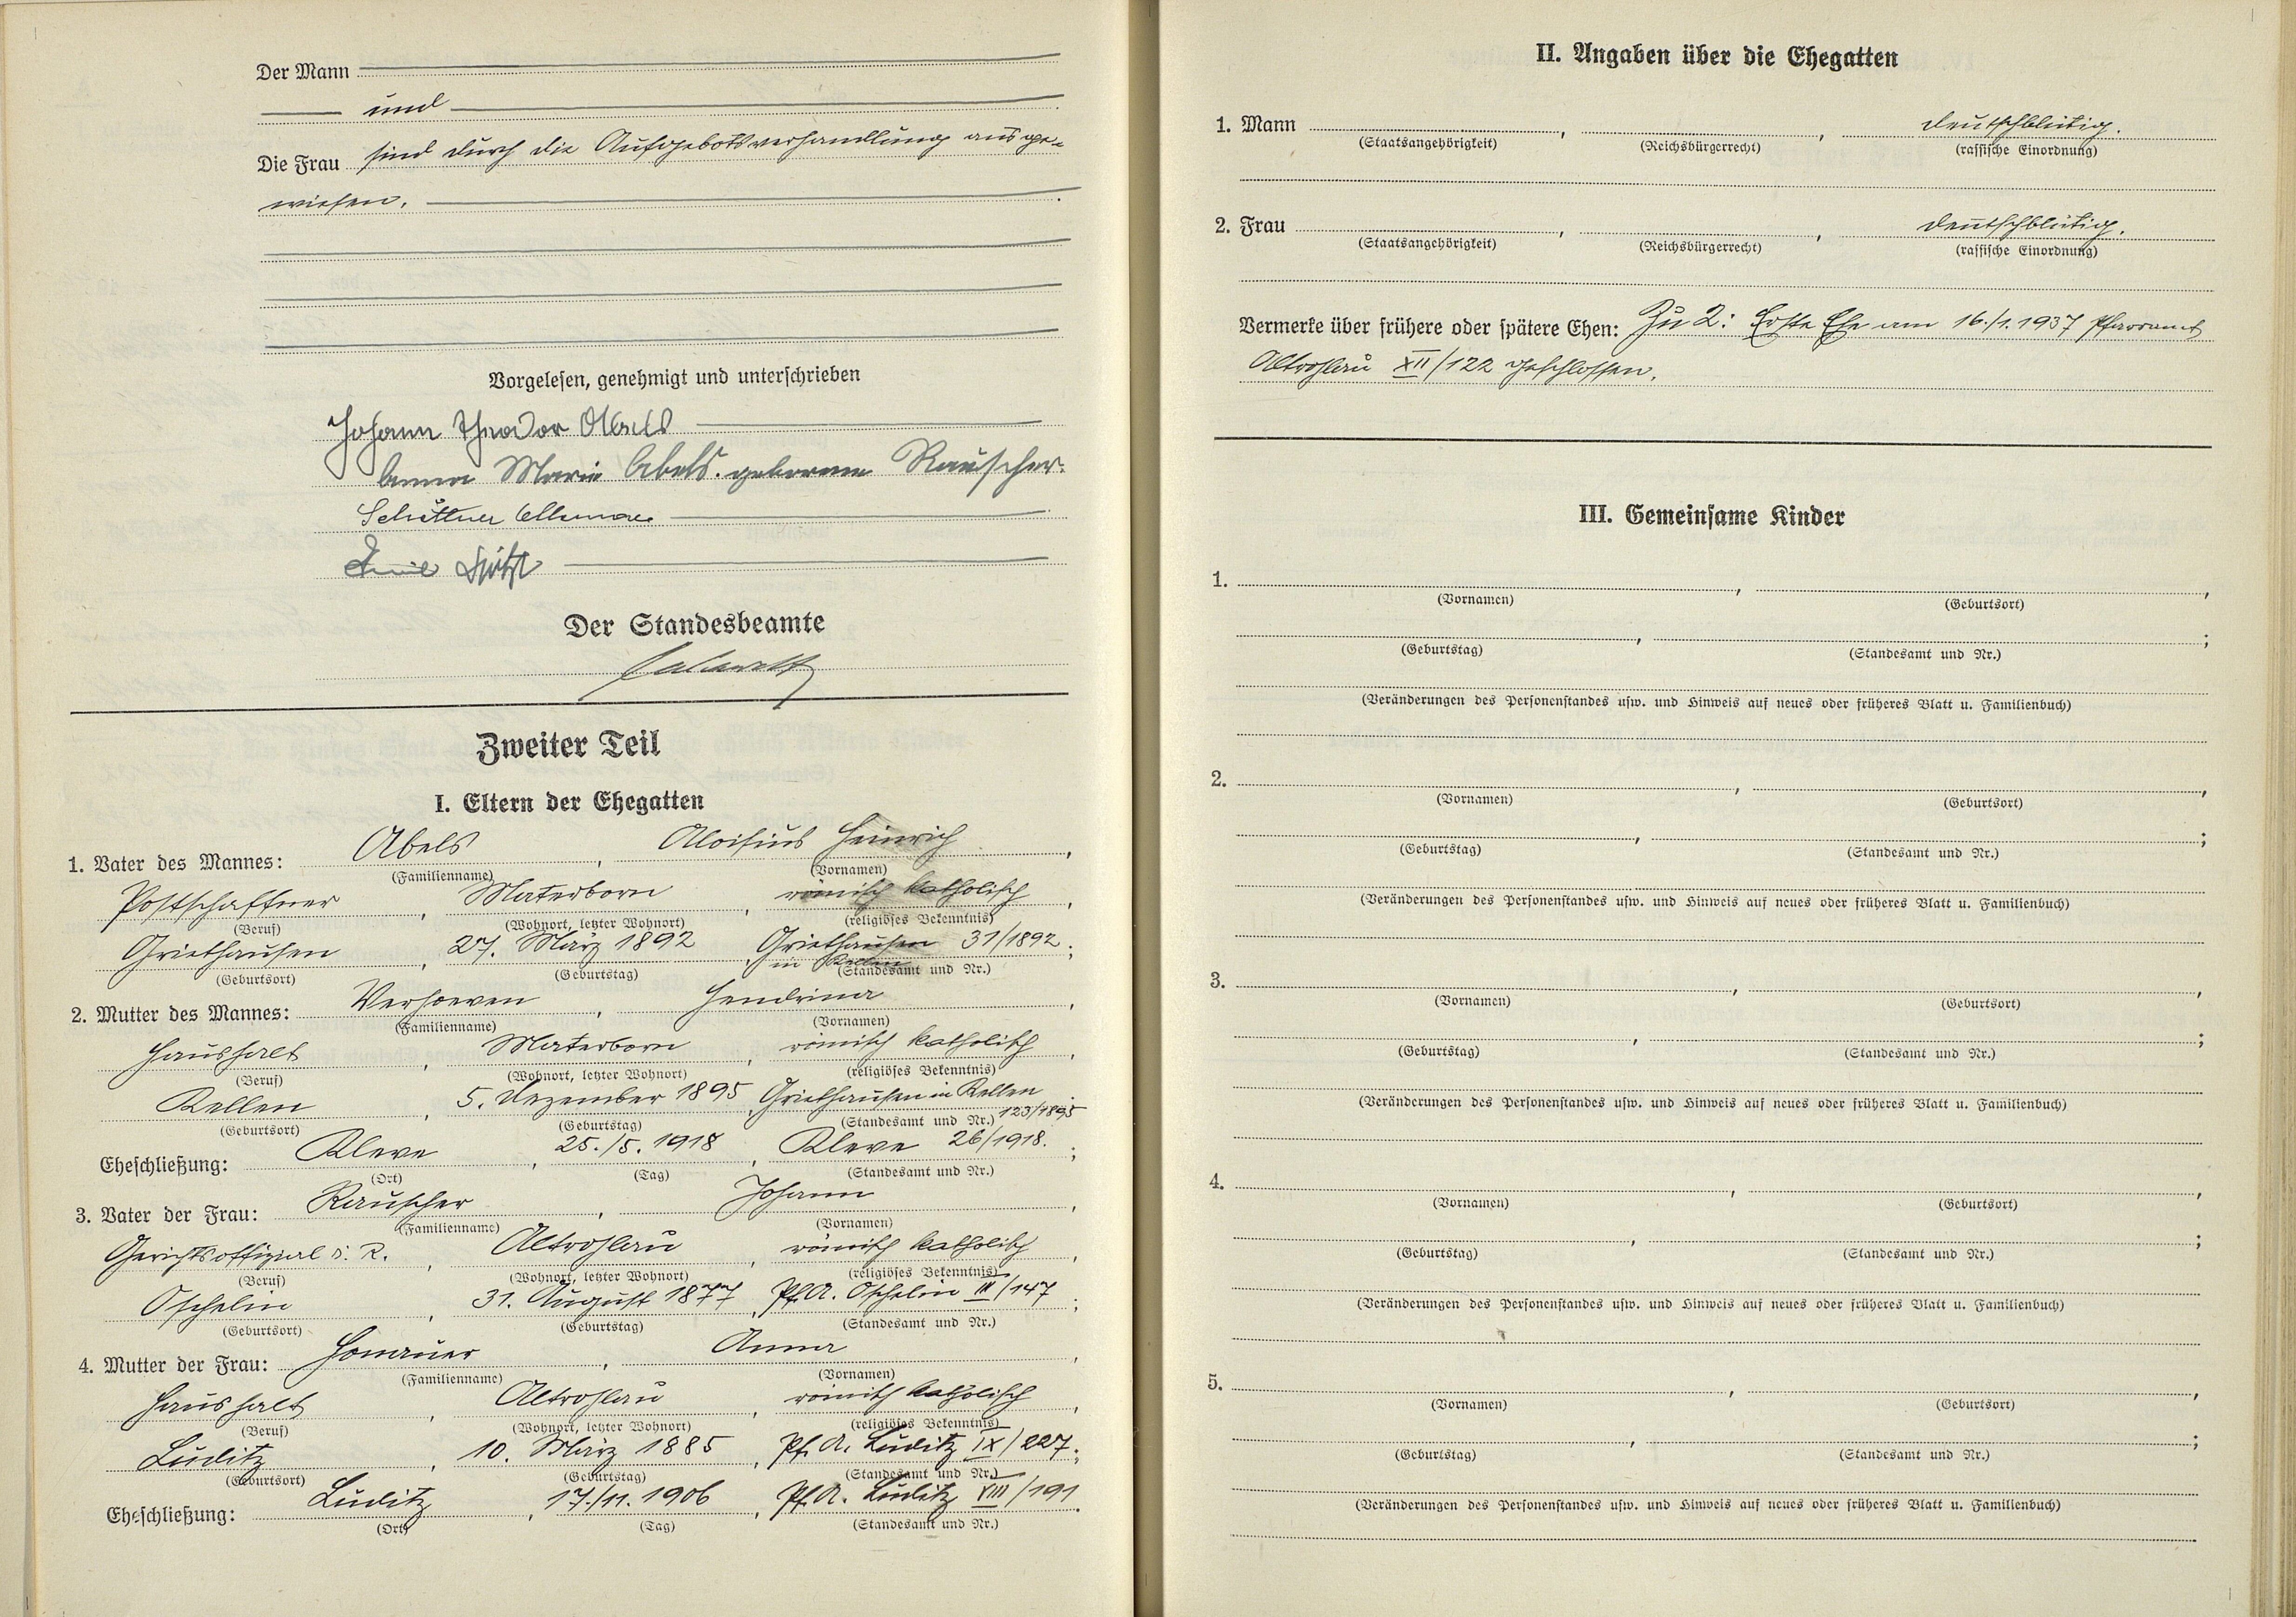 Der Mann
und
Die Frau sind durch die Aufgebotsverhandlung ausge-
wiesen.
Vorgelesen, genehmigt und unterschrieben
Johann Theodor Abels
Anna Marie Abels geborene Rauscher.
Emil
Der Standesbeamte
Zweiter Teil
I. Eltern der Ehegatten
1. Vater des Mannes: Abels, Aloisius Heinrich,
(Familienname) (Vornamen)
Postschaffner, Materborn, römisch katholisch,
(Beruf) (Wohnort, letzter Wohnort) (religiöses Bekenntnis)
Griethausen, 27. März 1892, Griethausen 31/1892;
in Kellen
(Geburtsort) (Geburtstag) (Standesamt und Nr.)
2. Mutter des Mannes: Verhoeven, Hendrina,
(Familienname) (Vornamen)
Haushalt, Materborn, römisch katholisch,
(Beruf) (Wohnort, letzter Wohnort) (religiöses Bekenntnis)
Kellen, 5. Dezember 1895, Griethausen in Kellen;
(Geburtsort) (Geburtstag) (Standesamt und Nr.) 123/1895
Eheschließung: Kleve, 25./5. 1918, Kleve 26/1918.;
(Ort) (Tag) (Standesamt und Nr.)
3. Vater der Frau: Rauscher, Johann,
(Familienname) (Vornamen)
Gerichtsoffizial i. R., Altrohlau, römisch katholisch,
(Beruf) (Wohnort, letzter Wohnort) (religiöses Bekenntnis)
Oschelin, 31. August 1877, Pf. A. Oschelin III/147;
(Geburtsort) (Geburtstag) (Standesamt und Nr.)
4. Mutter der Frau: Honauer, Anna,
(Familienname) (Vornamen)
Haushalt, Altrohlau, römisch katholisch,
(Beruf) (Wohnort, letzter Wohnort) (religiöses Bekenntnis)
Luditz, 10. März 1885, Pf. A. Luditz IX/227;
(Geburtsort) (Geburtstag) (Standesamt und Nr.)
Eheschließung: Luditz, 17./11. 1906, Pf. A. Luditz VIII/191.
(Ort) (Tag) (Standesamt und Nr.)
II. Angaben über die Ehegatten
1. Mann , , deutschblütig.
(Staatsangehörigkeit) (Reichsbürgerrecht) (rassische Einordnung)
2. Frau , , deutschblütig.
(Staatsangehörigkeit) (Reichsbürgerrecht) (rassische Einordnung)
Vermerke über frühere oder spätere Ehen: Zu 2: Erste Ehe am 16./1. 1937 Pfarramt
Altrohlau XII/122 geschlossen.
III. Gemeinsame Kinder
1. , ,
(Vornamen) (Geburtsort)
, ;
(Geburtstag) (Standesamt und Nr.)
(Veränderungen des Personenstandes usw. und Hinweis auf neues oder früheres Blatt u. Familienbuch)
2. , ,
(Vornamen) (Geburtsort)
, ;
(Geburtstag) (Standesamt und Nr.)
(Veränderungen des Personenstandes usw. und Hinweis auf neues oder früheres Blatt u. Familienbuch)
3. , ,
(Vornamen) (Geburtsort)
, ;
(Geburtstag) (Standesamt und Nr.)
(Veränderungen des Personenstandes usw. und Hinweis auf neues oder früheres Blatt u. Familienbuch)
4. , ,
(Vornamen) (Geburtsort)
, ;
(Geburtstag) (Standesamt und Nr.)
(Veränderungen des Personenstandes usw. und Hinweis auf neues oder früheres Blatt u. Familienbuch)
5. , ,
(Vornamen) (Geburtsort)
, ;
(Geburtstag) (Standesamt und Nr.)
(Veränderungen des Personenstandes usw. und Hinweis auf neues oder früheres Blatt u. Familienbuch)